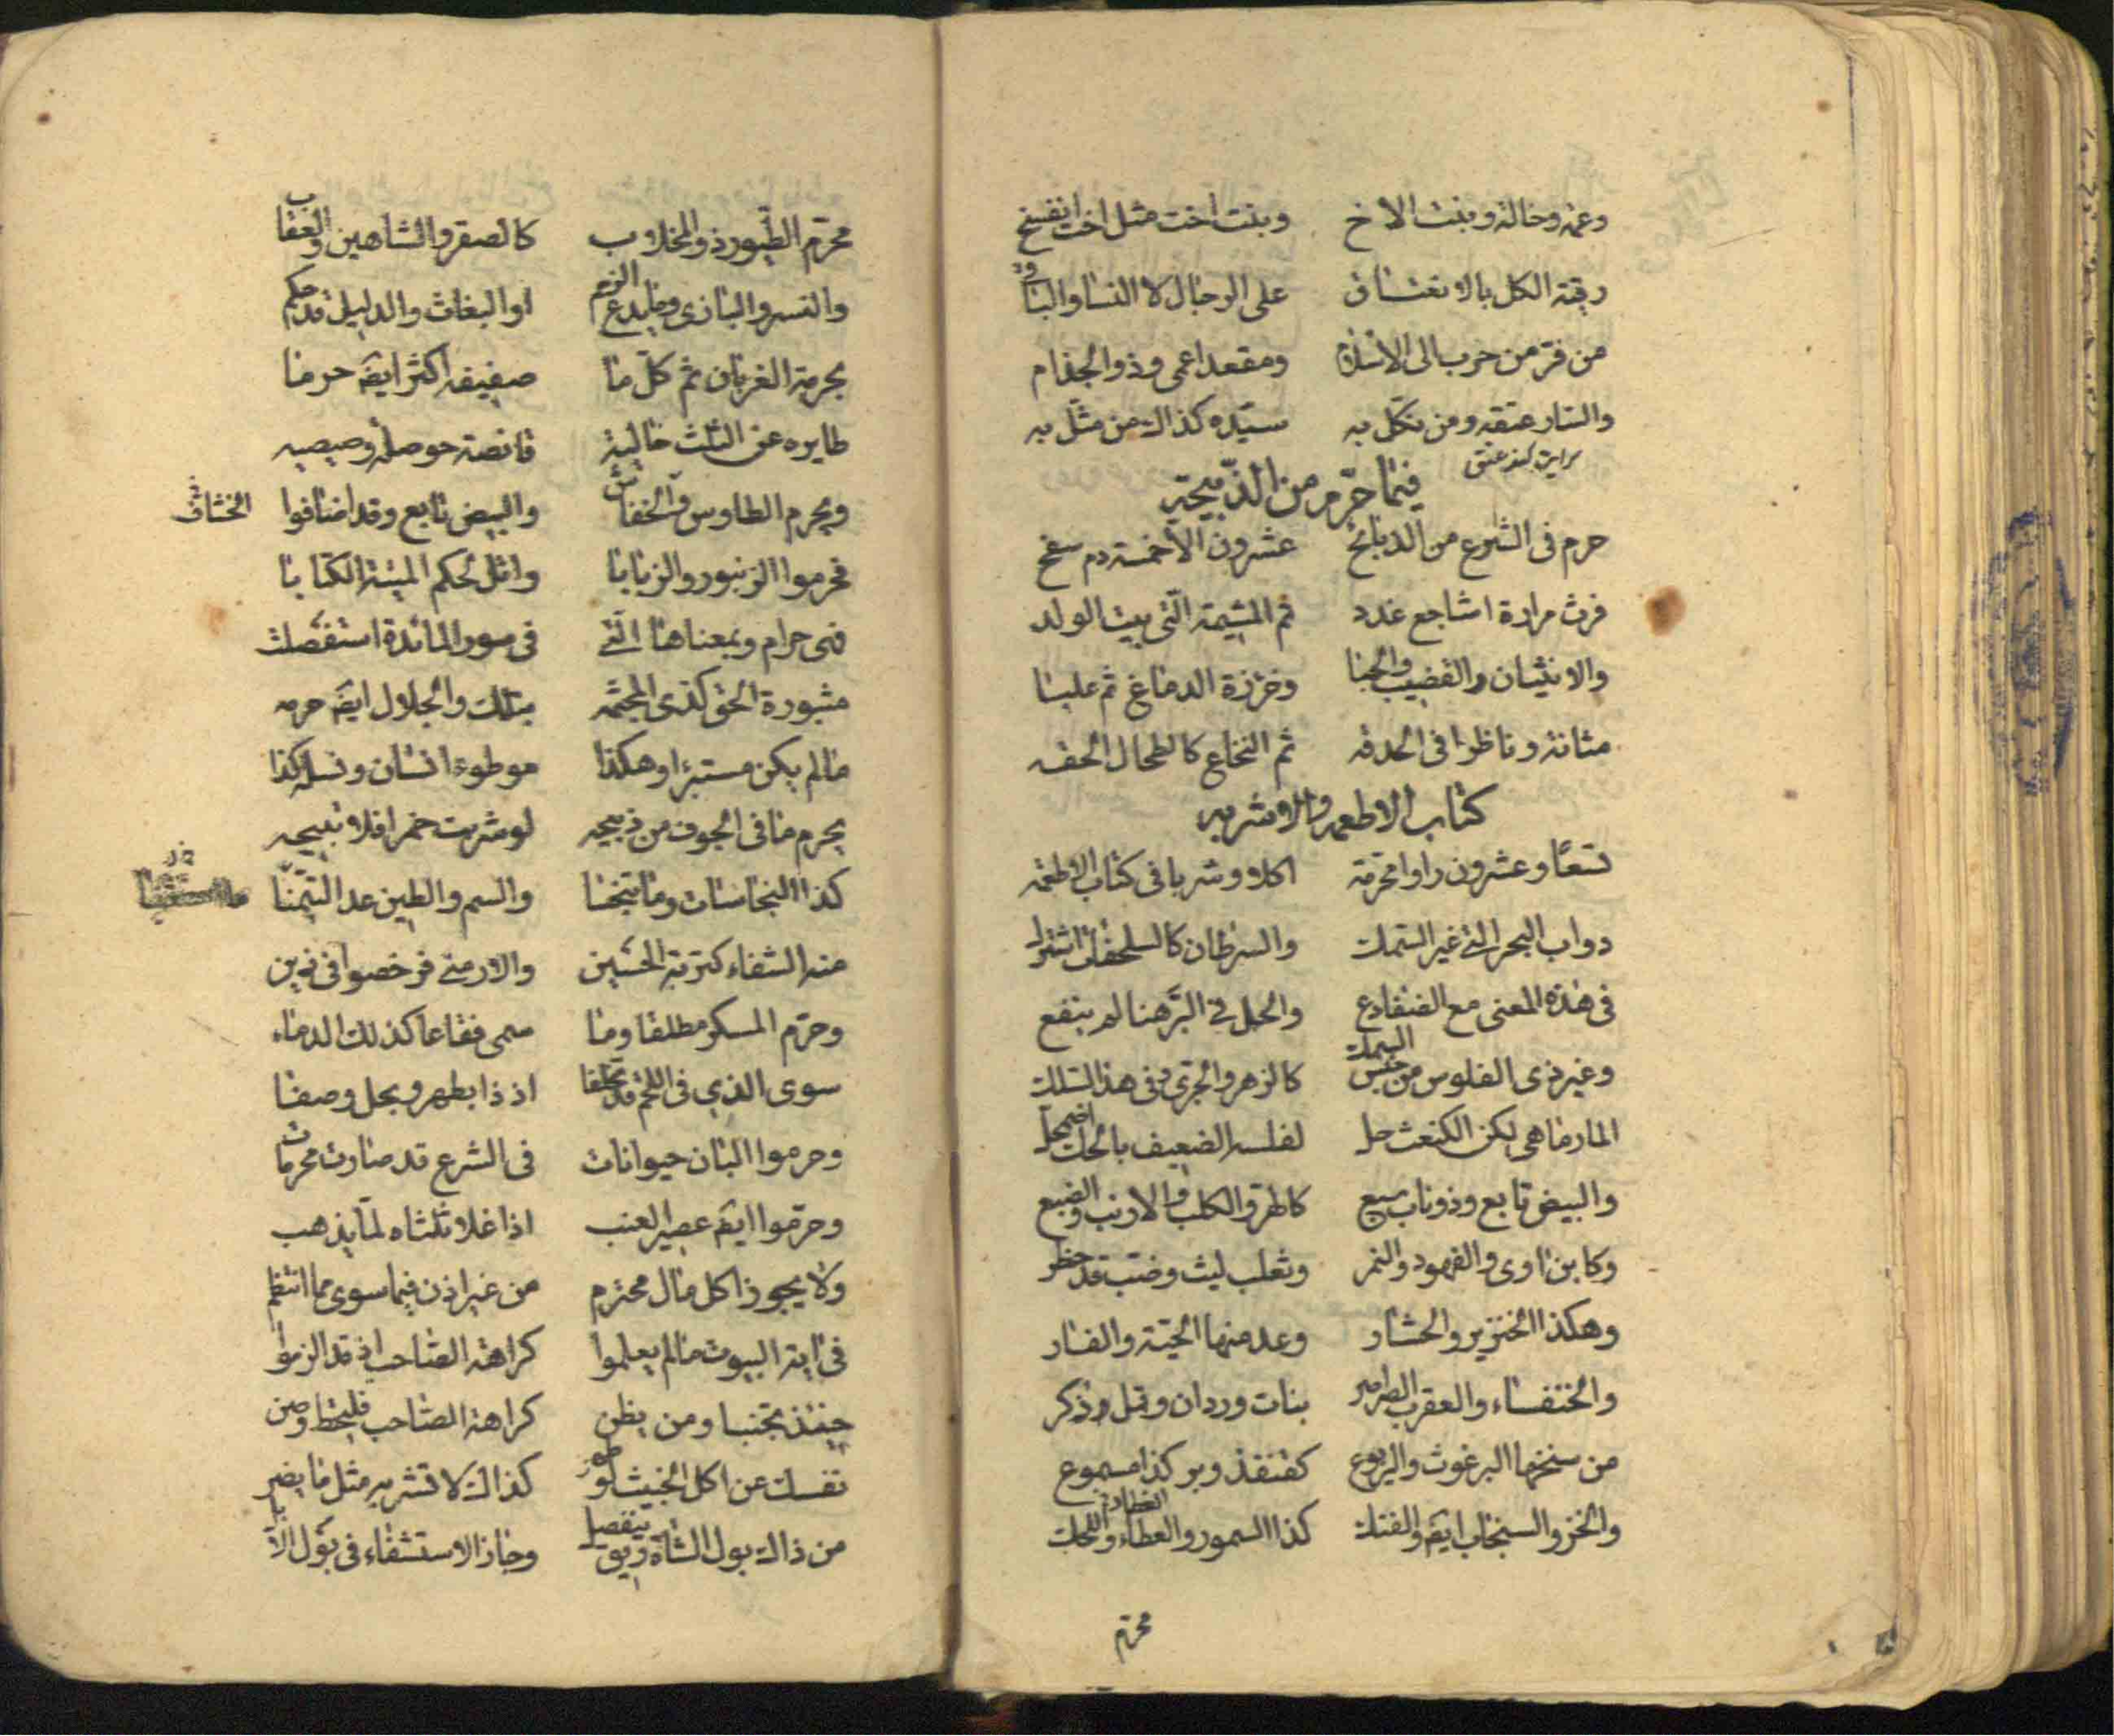 وعمة وخالة وبنت الاخ وبنت اخت مثل اخت انفسخ
رقية الكل بالانعتاق على الرجال لا النسا والبا
من فر من حرب الى الاسلام ومقعد اعمى وذو الجذام
والسار عتقه ومن نكل به سيده كذاك من مثل به
فيما حرم من الذبيحة
حرم فى الشرع من الذبايح عشرون الا خمسة دم سفح
فرث مرارة اشاجع غدد ثم المشيمة التى بيت الولد
والانثيان والقضيب والحيا وخرزة الدماغ ثم علبا
مثانة وناظرا فى الحدقه ثم النخاع كالطحال الحقه
كتاب الاطعمه والاشربه
تسعا وعشرون راوا محرمة اكلا وشربا فى كتاب الاطعمه
دواب البحر التى غير السمك والسرطان كالسلحفات اشترك
فى هذه المعنى مع الضفادع والحل فى البر هنا لم ينفع
وغير ذى الفلوس من جنس السمك كالزهو والجرى فى هذا السلك
المارماهى لكن الكنعت حل لفلسه الضعيف بالحك اضمحل
والبيض تابع وذو ناب سبع كالهر والكلب والارنب والضبع
وكابن اوى والفهود والنمر وثعلب ليث وضب قد حظر
وهكذا الخنزير والحشار وعد منها الحية والفار
والخنفساء والعقرب الصراصر بنات وردان وقمل وذكر
من سنخها البرغوث واليربوع كقنفذ وبر كذا مسموع
والخز والسنجاب ايضا والفنك كذا السمور والعظاء واللحك
محرم
محرم الطيور ذو المخلاب كالصقر والشاهين والعقاب
والنسر والبازى وما يدعى الرخم او البغاث والدليل قد حكم
بحرمة الغربان ثم كل ما صفيفه اكثر ايضا حرما
طايره عن الثلث خالية قانصة حوصلة وصيصيه
ويحرم الطاوس والخفاش والبيض تابع وقد اضافوا الخشاف
فحرموا الزنبور والزبابا واتل لحكم الميتة الكتابا
فهى حرام وبمعناها التى فى سورة المائدة استقصلت
مثبورة الحق كذى المجثمه بتلك والجلال ايضا حرمه
ما لم يكن مستبرا وهكذا موطوءة انسان ونسله كذا
يحرم ما فى الجوف من ذبيحه لو شربت خمرا فلا تبيحه
كذا النجاسات وما تنجسا والسم والطين عدا
منه الشفاء كتربة الحسين والارمنى فرخصوا فى ذين
وحرم المسكر مطلقا وما سمى فقاعا كذلك الدماء
سوى الذى فى اللحم قد تخلفا اذ ذا بطهر وبحل وصفا
وحرموا البان حيوانات فى الشرع قد صارت محرمات
وحرموا ايضا عصير العنب اذا غلا ثلثاه لما يذهب
ولا يجوز اكل مال محترم من غير اذن فيما سوى مما انتظم
فى اية البيوت ما لم يعلموا كراهة الصاحب اذ قد الزموا
حينئذ تجنبا ومن يظن كراهة الصاحب فليحتط وصن
نفسك عن اكل الخبيث كذاك لا تشربه مثل ما يضر
من ذاك بول الشاة وجاز الاستشفاء فى بول الابل